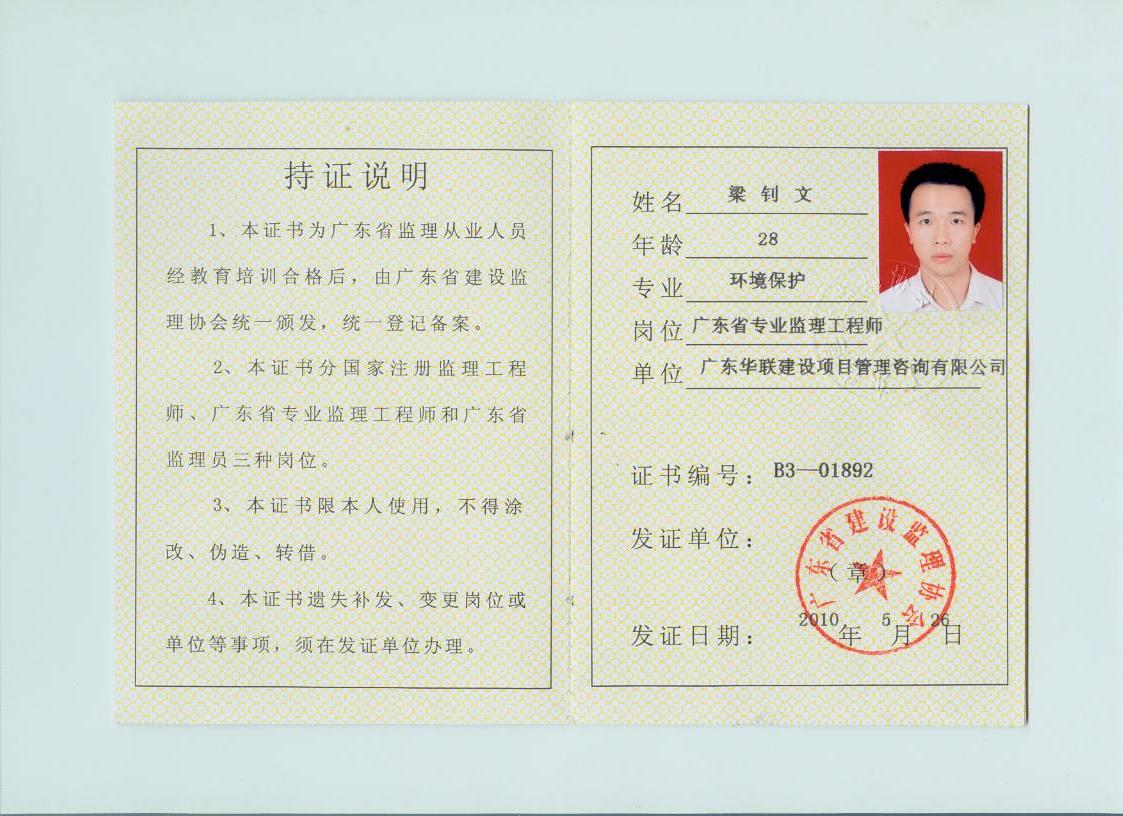 持证说明
1、本证书为广东省监理从业人员
经教育培训合格后，由广东省建设监
理协会统一颁发，统一登记备案。
2、本证书分国家注册监理工程
师、广东省专业监理工程师和广东省
监理员三种岗位。
3、本证书限本人使用，不得涂
改、伪造、转借。
4、本证书遗失补发、变更岗位或
单位等事项，须在发证单位办理。
姓名 梁钊文
年龄 28
专业 环境保护
岗位 广东省专业监理工程师
单位 广东华联建设项目管理咨询有限公司
证书编号：B3—01892
发证单位：
（章）
广东省建设监理协会
发证日期：2010年5月26日